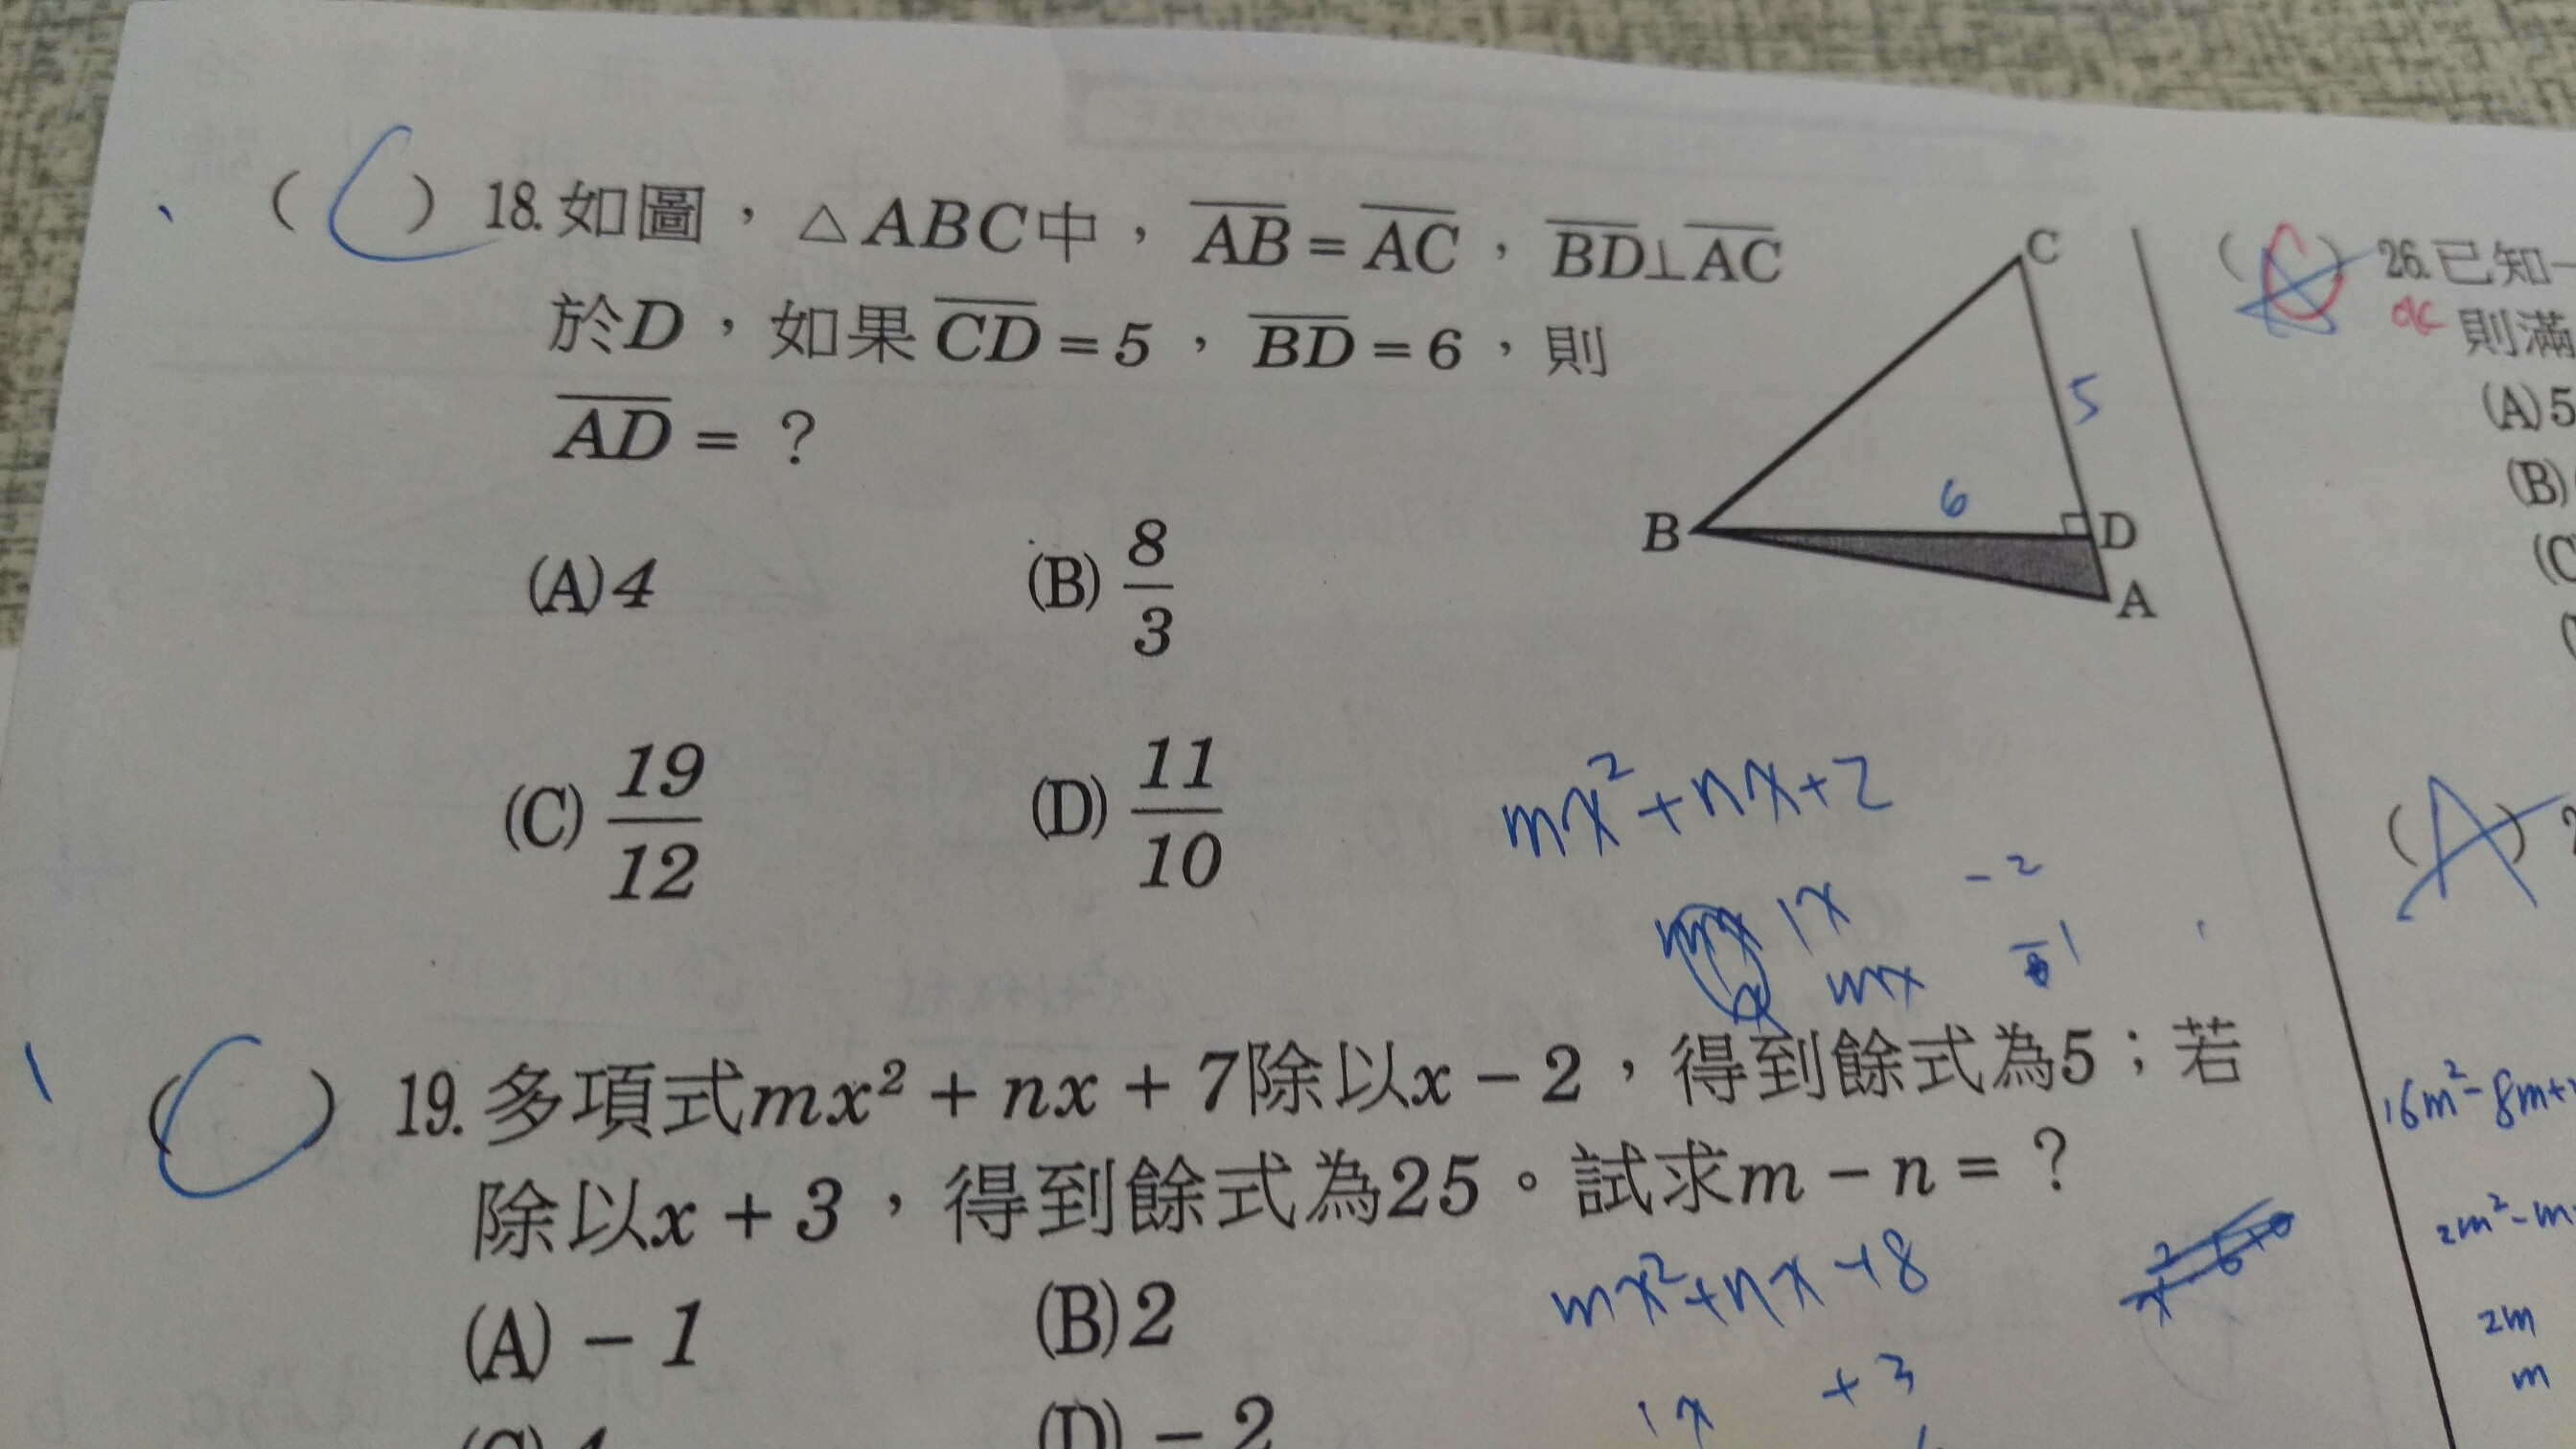 (C) 18. 如圖，△ABC中，AB=AC，BD⊥AC
於D，如果CD=5，BD=6，則
AD=？
(A)4 (B)8/3
(C)19/12 (D)11/10
C
5
6
B
D
A
mx²+nx+2
1x -2
mx
(C) 19. 多項式mx²+nx+7除以x-2，得到餘式為5；若
除以x+3，得到餘式為25。試求m-n=？
(A)-1 (B)2
(D)-2
mx²+nx+8
1x +3
26. 已知一
則滿
(A)5
(B)
(C
(A)
16m²-8m+
2m²-m
2m
m